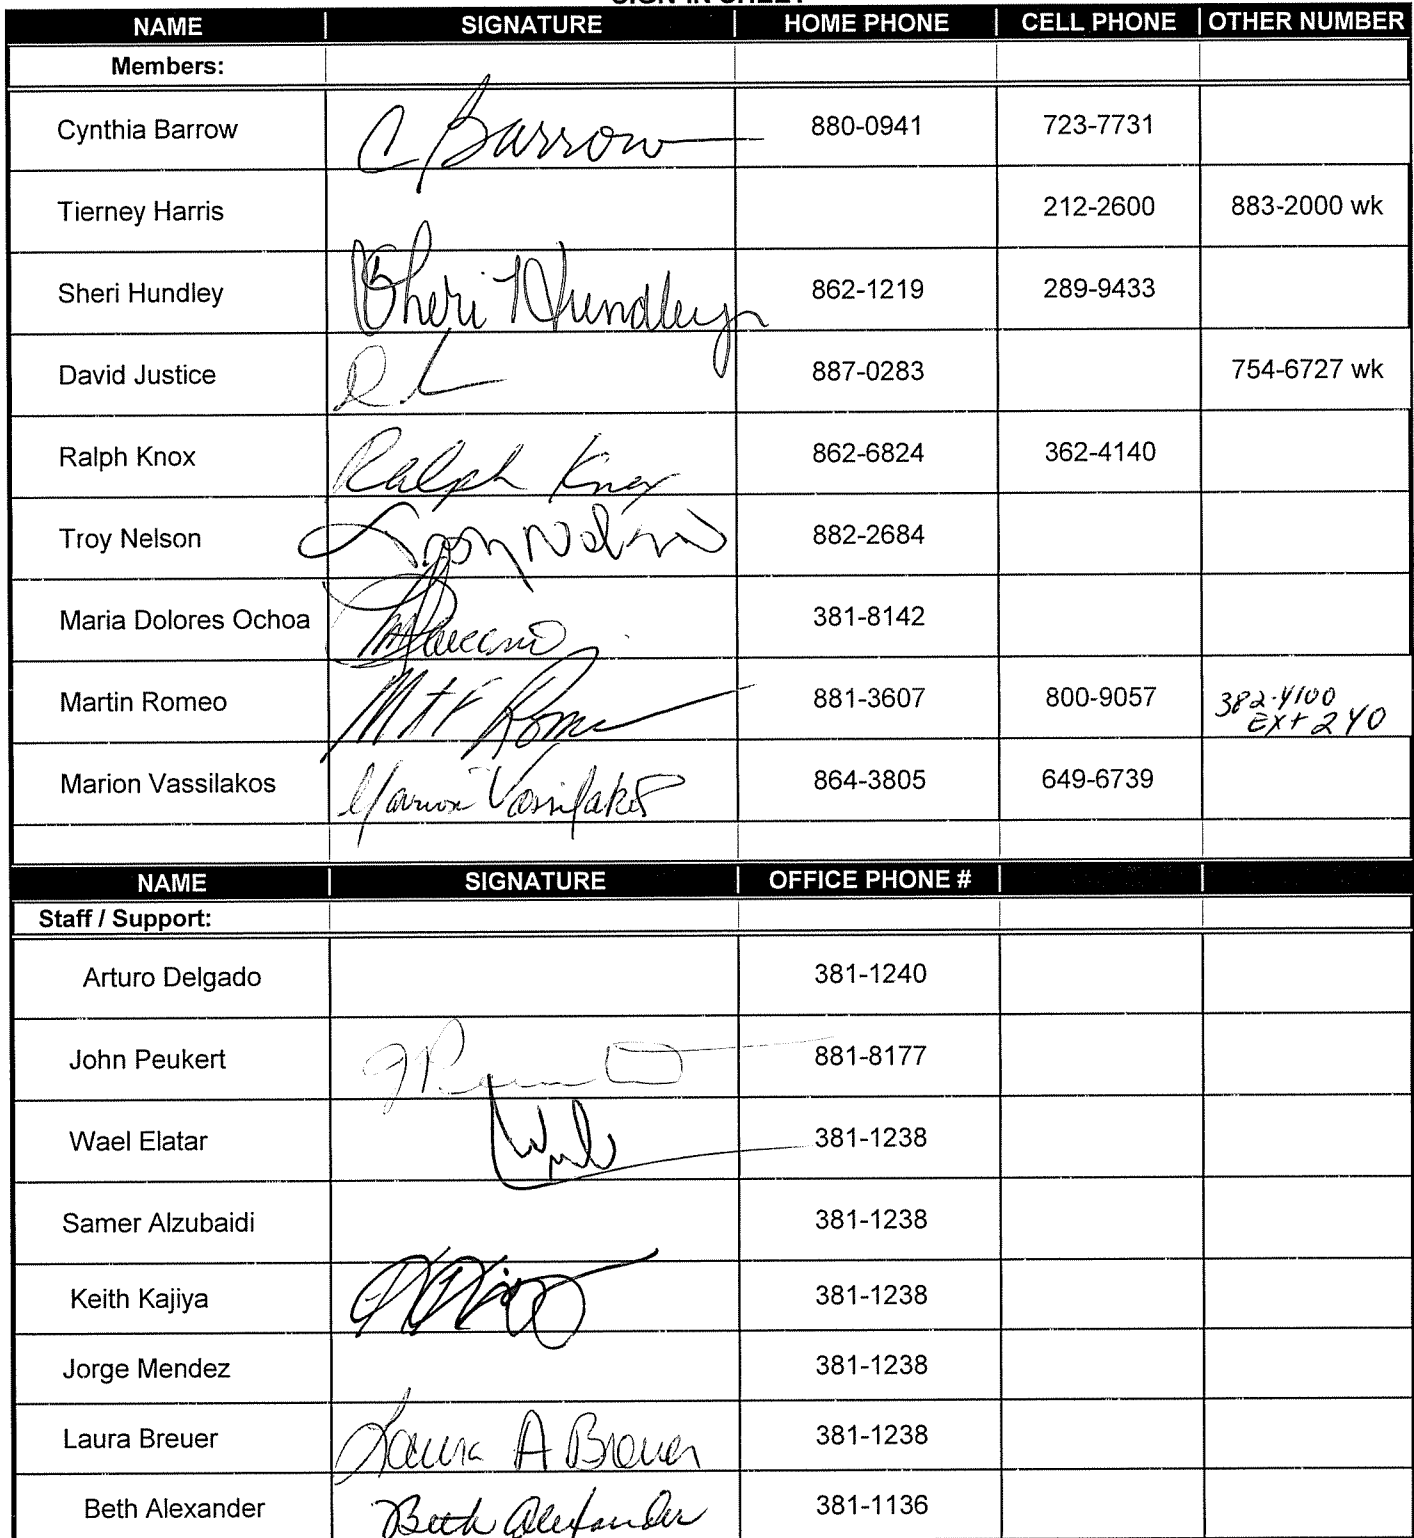 NAME SIGNATURE HOME PHONE CELL PHONE OTHER NUMBER
Members:
Cynthia Barrow C Barrow 880-0941 723-7731
Tierney Harris 212-2600 883-2000 wk
Sheri Hundley Sheri Hundley 862-1219 289-9433
David Justice 887-0283 754-6727 wk
Ralph Knox Ralph Knox 862-6824 362-4140
Troy Nelson Troy Nelson 882-2684
Maria Dolores Ochoa 381-8142
Martin Romeo 881-3607 800-9057 382-4100
Ext 240
Marion Vassilakos Marion Vassilakos 864-3805 649-6739
NAME SIGNATURE OFFICE PHONE #
Staff / Support:
Arturo Delgado 381-1240
John Peukert 881-8177
Wael Elatar 381-1238
Samer Alzubaidi 381-1238
Keith Kajiya 381-1238
Jorge Mendez 381-1238
Laura Breuer Laura A Breuer 381-1238
Beth Alexander Beth Alexander 381-1136